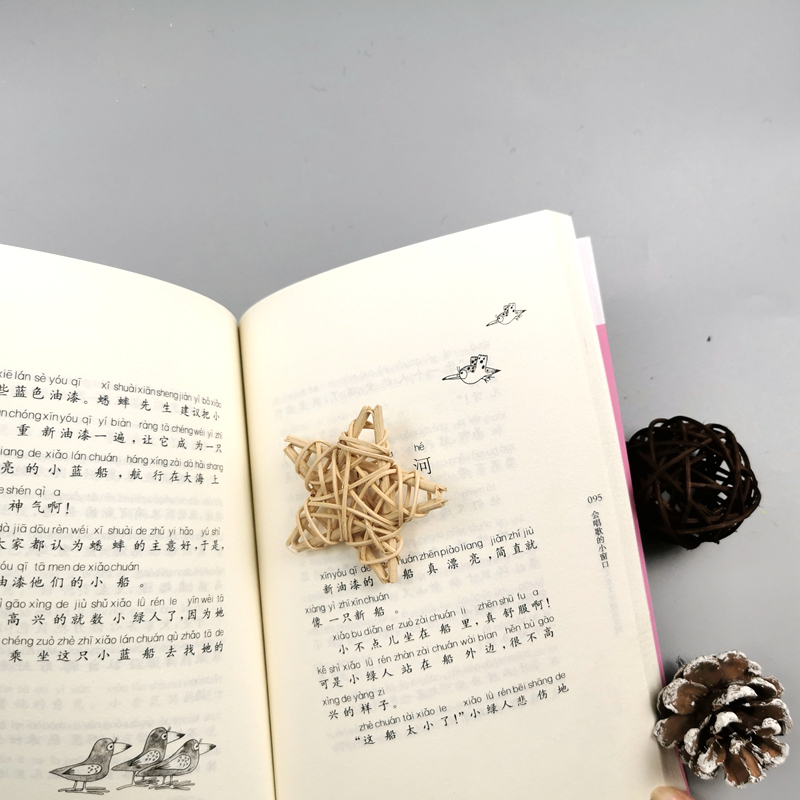 xiē lán sè yóu qī xī shuài xiān sheng jiàn yì bǎ xiǎo
些蓝色油漆。蟋蟀先生建议把小
chóng xīn yóu qī yí biàn ràng tā chéng wéi yì zhī
重新油漆一遍，让它成为一只
liang de xiǎo lán chuán háng xíng zài dà hǎi shang
亮的小蓝船，航行在大海上
shén qì a
神气啊！
dà jiā dōu rèn wéi xī shuài de zhǔ yi hǎo yú shì
大家都认为蟋蟀的主意好，于是，
yóu qī tā men de xiǎo chuán
油漆他们的小船。
gāo xìng de jiù shǔ xiǎo lǜ rén le yīn wèi tā
高兴的就数小绿人了，因为她
chéng zuò zhè zhī xiǎo lán chuán qù zhǎo tā de
乘坐这只小蓝船去找她的
hé
河
xīn yóu qī de chuán zhēn piào liang jiǎn zhí jiù
新油漆的船真漂亮，简直就
xiàng yì zhī xīn chuán
像一只新船。
xiǎo bu diǎn er zuò zài chuán li zhēn shū fu a
小不点儿坐在船里，真舒服啊！
kě shì xiǎo lǜ rén zhàn zài chuán wài bian hěn bù gāo
可是小绿人站在船外边，很不高
xìng de yàng zi
兴的样子。
zhè chuán tài xiǎo le xiǎo lǜ rén bēi shāng de
“这船太小了！”小绿人悲伤地
095
会唱歌的小窗口